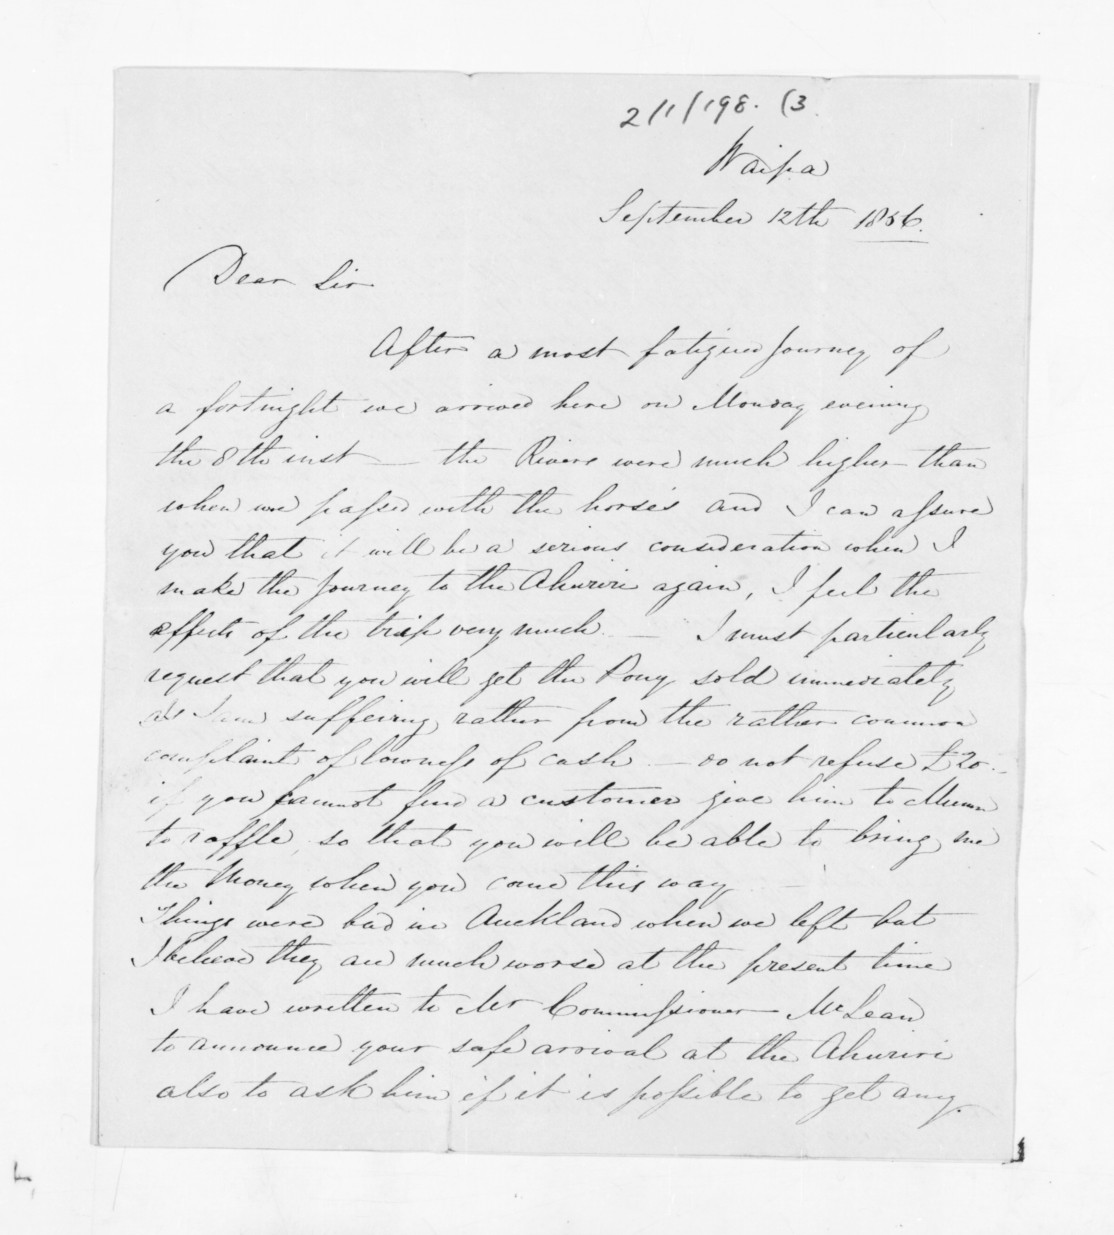 2/1/198. (3.
Waipa
September 12th 1856.
Dear Sir
After a most fatigued Journey of
a fortnight we arrived here on Monday evening
the 8th inst — the Rivers were much higher than
when we passed with the horses and I can assure
you that it will be a serious consideration when I
make the Journey to the Ahuriri again, I feel the
effects of the trip very much. — I must particularly
request that you will get the Pony sold immediately
as I am suffeirng rather from the rather common
complaint of lowness of cash — do not refuse £20 —
if you cannot find a customer give him to Munn
to raffle, so that you will be able to bring me
the Money when you come this way —
Things were bad in Auckland when we left but
I believe they are much worse at the present time
I have written to Mr Commissioner McLean
to announce your safe arrival at the Ahuriri
also to ask him if it is possible to get any